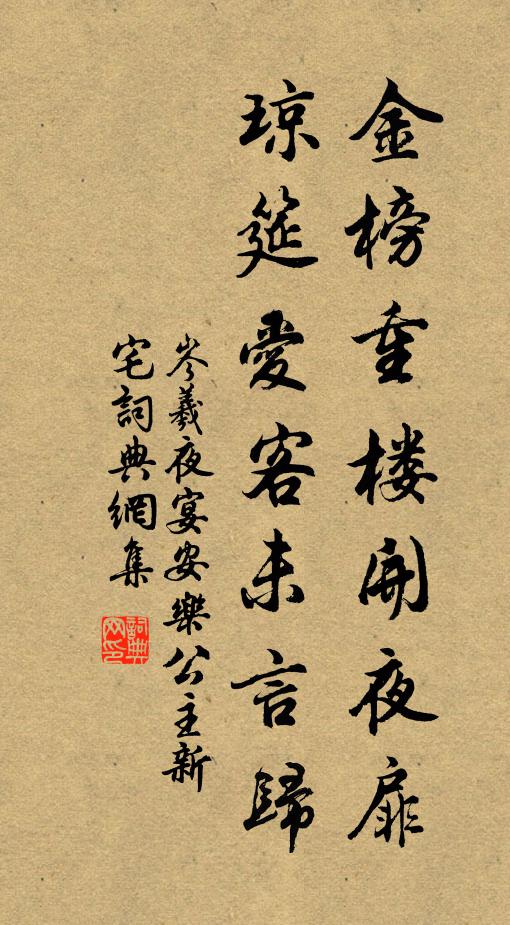 金榜重楼開夜扉
琼筵愛客未言歸
岑羲夜宴安樂公主新
宅詞典網集
詞典网印